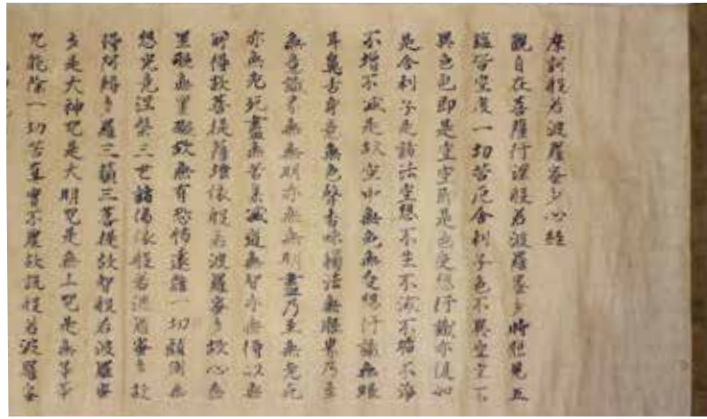 摩訶般若波羅蜜多心経
觀自在菩薩行深般若波羅蜜多時照見五
蘊皆空度一切苦厄舎利子色不異空空不
異色色即是空空即是色受想行識亦復如
是舎利子是諸法空想不生不滅不垢不浄
不増不減是故空中無色無受想行識無眼
耳鼻舌身意無色聲香味觸法無眼界乃至
無意識界無無明亦無無明盡乃至無老死
亦無老死盡無苦集滅道無智亦無得以無
所得故菩提薩埵依般若波羅蜜多故心無
罣礙無罣礙故無有恐怖遠離一切顛倒夢
想究竟涅槃三世諸佛依般若波羅蜜多故
得阿耨多羅三藐三菩提故智般若波羅蜜
多是大神咒是大明咒是無上咒是無等等
咒能除一切苦真實不虚故説般若波羅蜜